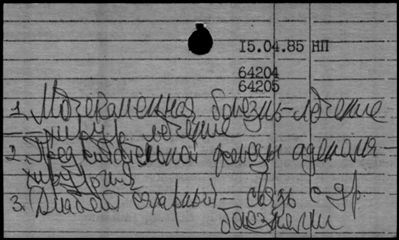 15.04.85 НП
64204
64205
1. Мочекаменная болезнь - лечение
- хирург. лечение
2. Предстательной железы аденома -
хирургия
3. Диабет сахарный - связь с др.
болезнями